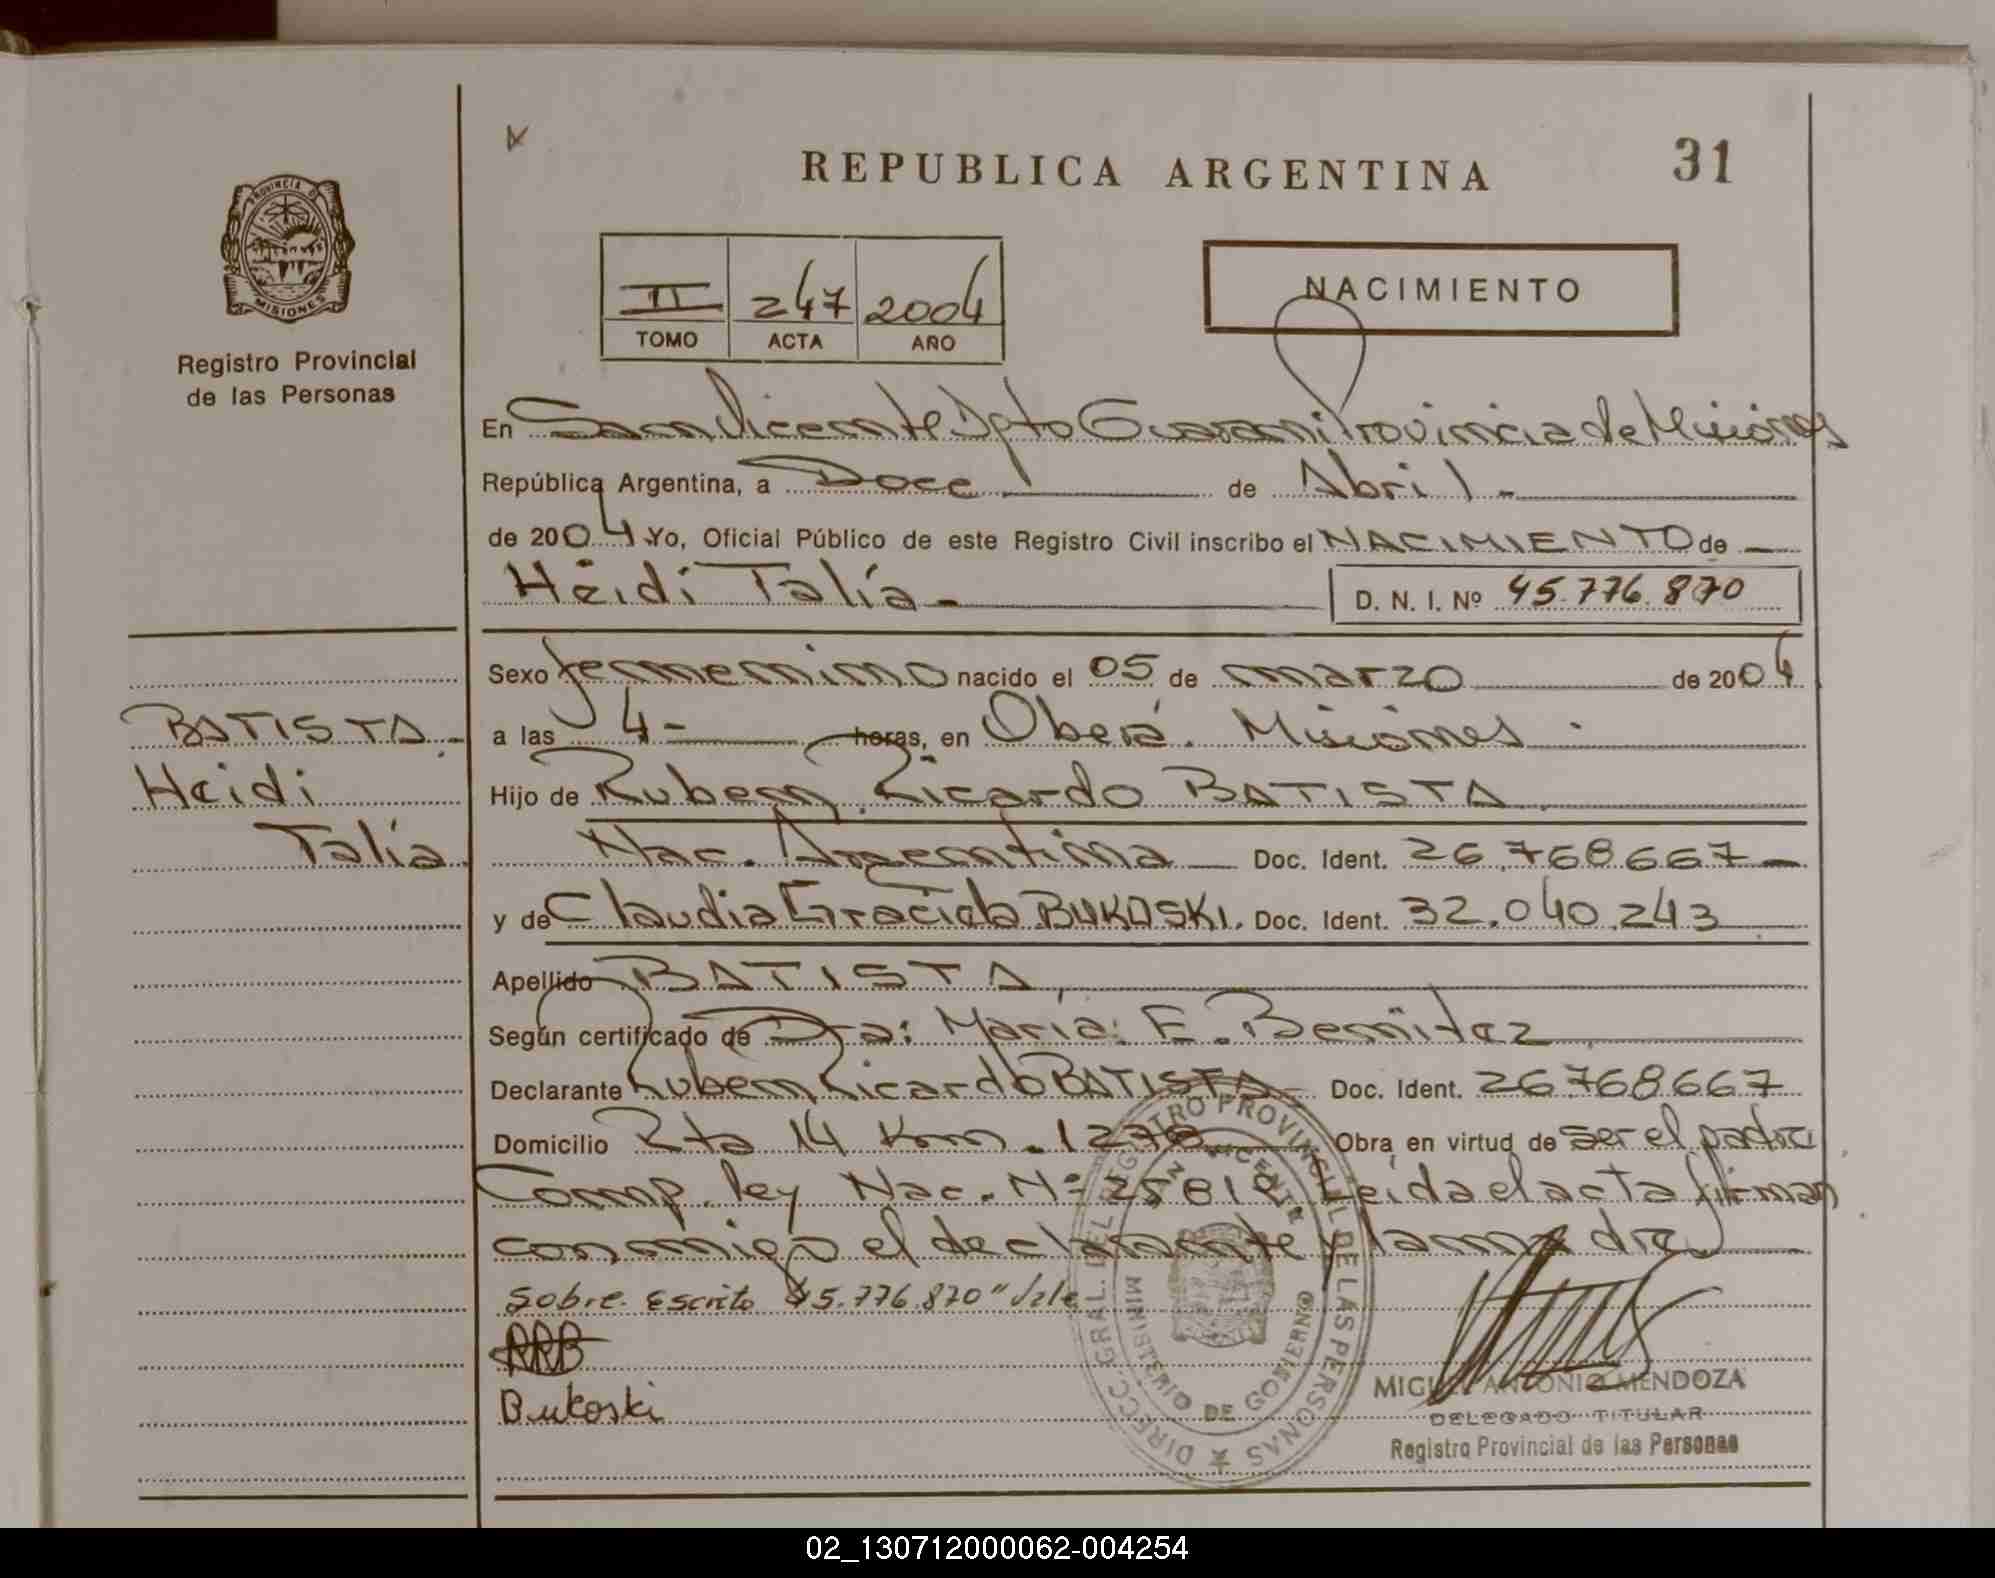 REPUBLICA ARGENTINA
31
PROVINCIA D MISIONES
Registro Provincial
de las Personas
II 247 2004
TOMO ACTA AÑO
NACIMIENTO
En San Vicente Dpto Guaraní Provincia de Misiones
República Argentina, a Doce de Abril
de 2004 Yo, Oficial Público de este Registro Civil inscribo el NACIMIENTO de
Heidi Talía D. N. I. Nº 45.776.870
BATISTA
Heidi
Talía
Sexo femenino nacido el 05 de marzo de 2004
a las 4 horas, en Oberá. Misiones
Hijo de Ruben Ricardo BATISTA
Nac. Argentina Doc. Ident. 26.768.667
y de Claudia Graciela BUKOSKI. Doc. Ident. 32.040.243
Apellido BATISTA
Según certificado de Dra: María: E. Benitez
Declarante Ruben Ricardo BATISTA Doc. Ident. 26768667
Domicilio Rta 14 Km. 1270 Obra en virtud de ser el padre
Comp. ley Nac. Nº 25819 Leida el acta firman
conmigo el declarante y la madre
Sobre. Escrito 45.776.870" Vale
RRB
Bukoski
DIRECC. GRAL. DEL REGISTRO PROVINCIAL DE LAS PERSONAS
SAN VICENTE
MINISTERIO DE GOBIERNO
MIGUEL ANTONIO MENDOZA
DELEGADO TITULAR
Registro Provincial de las Personas
02_130712000062-004254